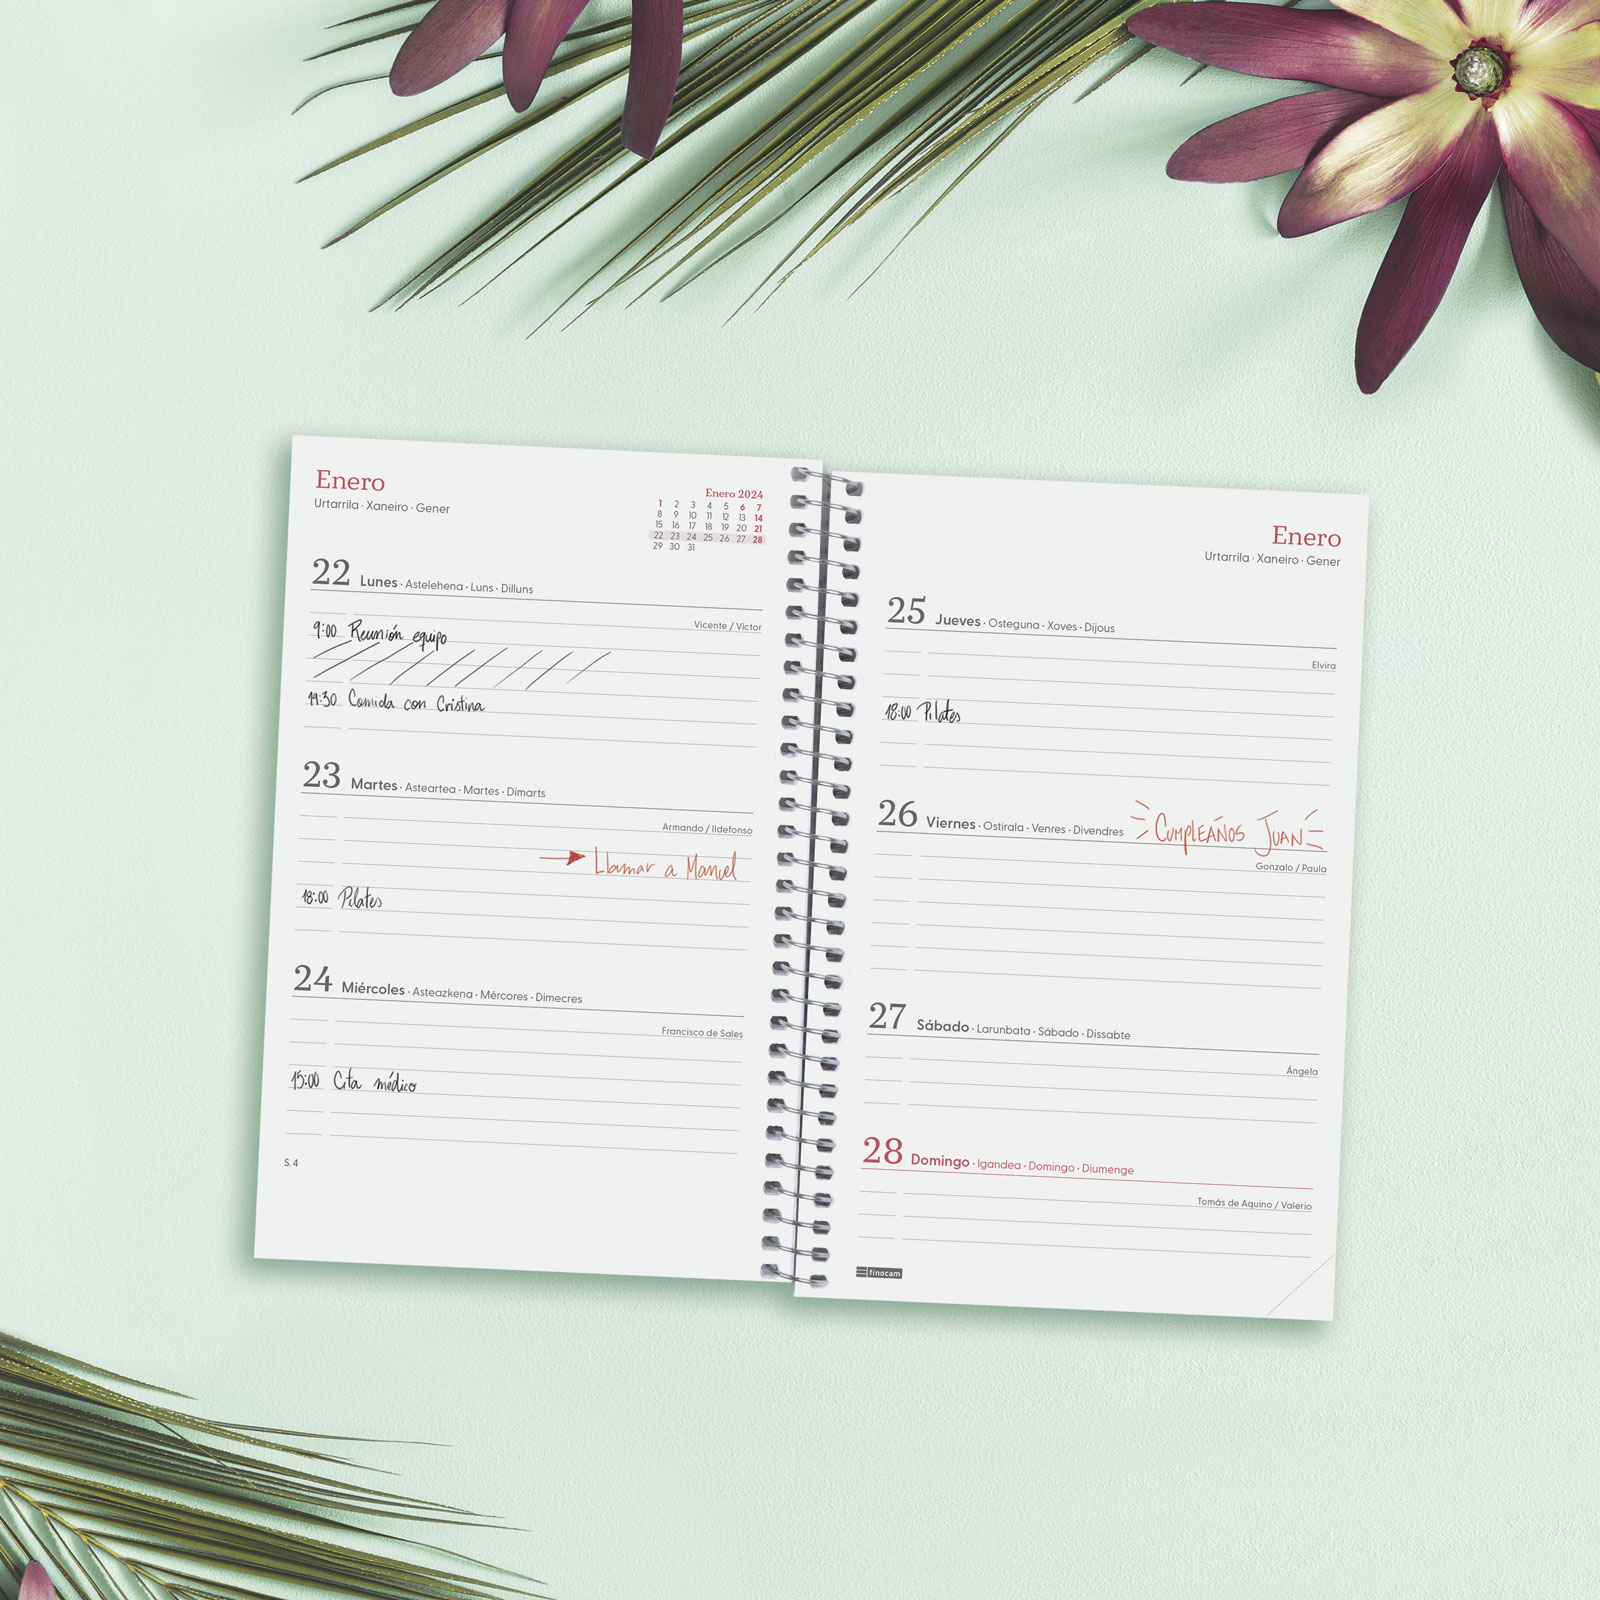 Enero
Urtarrila · Xaneiro · Gener
Enero 2024
1 2 3 4 5 6 7
8 9 10 11 12 13 14
15 16 17 18 19 20 21
22 23 24 25 26 27 28
29 30 31
22 Lunes · Astelehena · Luns · Dilluns
Vicente / Víctor
9:00 Reunión equipo
14:30 Comida con Cristina
23 Martes · Asteartea · Martes · Dimarts
Armando / Ildefonso
Llamar a Manuel
18:00 Pilates
24 Miércoles · Asteazkena · Mércores · Dimecres
Francisco de Sales
15:00 Cita médico
S. 4
Enero
Urtarrila · Xaneiro · Gener
25 Jueves · Osteguna · Xoves · Dijous
Elvira
18:00 Pilates
26 Viernes · Ostirala · Venres · Divendres CUMPLEAÑOS JUAN
Gonzalo / Paula
27 Sábado · Larunbata · Sábado · Dissabte
Ángela
28 Domingo · Igandea · Domingo · Diumenge
Tomás de Aquino / Valerio
finocam